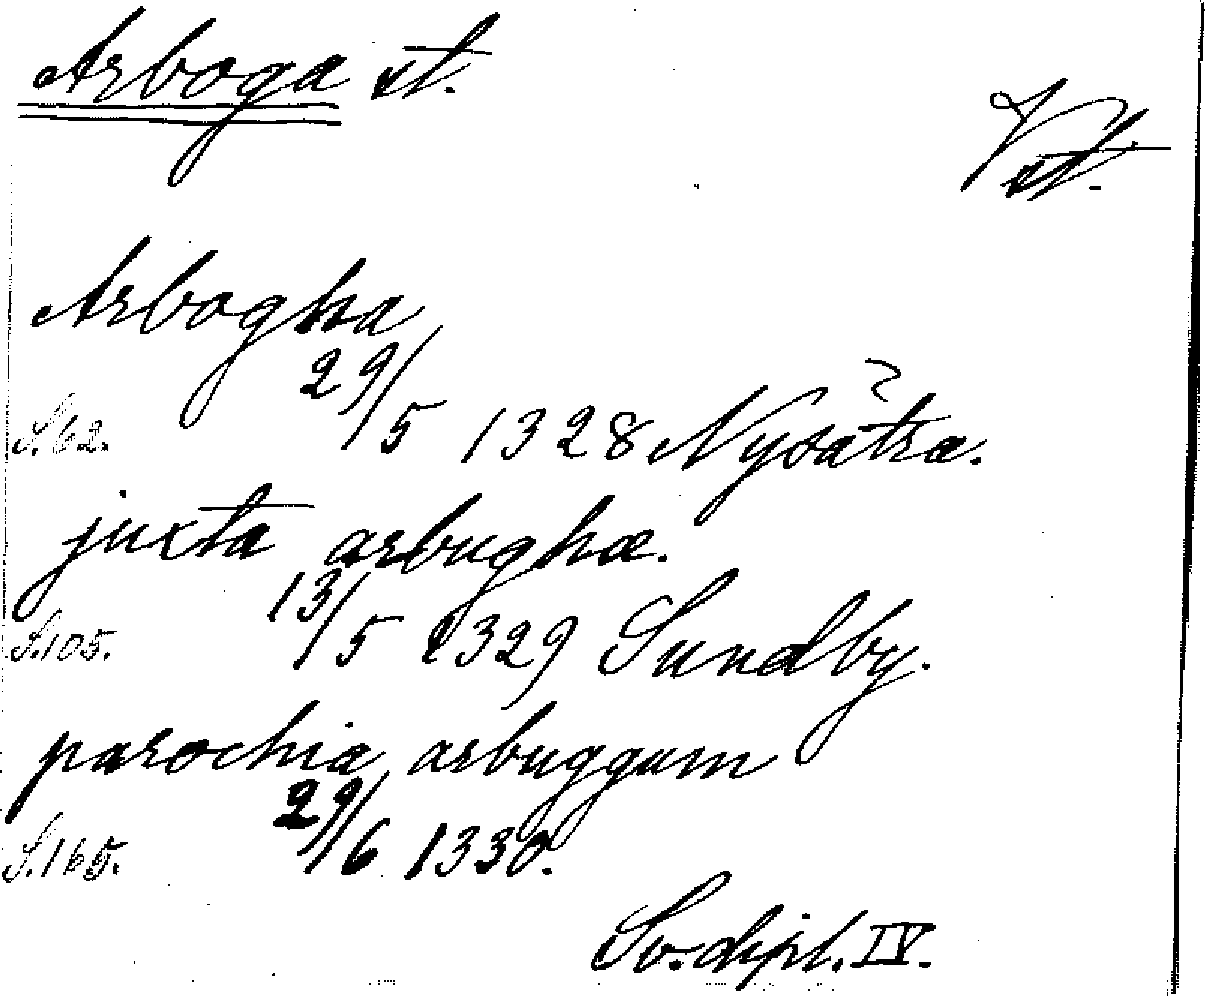 Arboga st.
Vstm.
Arbogha
S. 62. 29/5 1328 Nysätra.
juxta arbughæ.
S. 105. 13/5 1329 Sundby.
parochia arbuggum
S. 165. 29/6 1330.
Sv. dipl. IV.